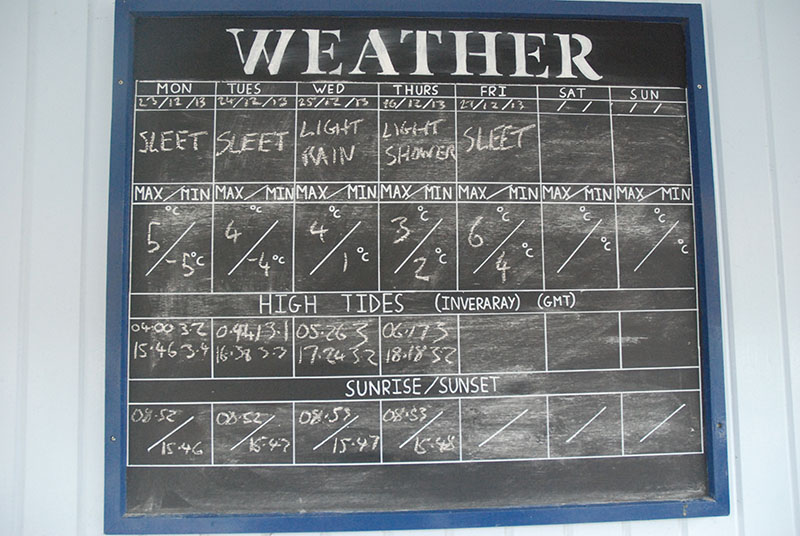 WEATHER
MON TUES WED THURS FRI SAT SUN
23/12/13 24/12/13 25/12/13 26/12/13 27/12/13 / / / /
SLEET SLEET LIGHT RAIN LIGHT SHOWER SLEET
MAX/MIN MAX/MIN MAX/MIN MAX/MIN MAX/MIN MAX/MIN MAX/MIN
5°C/-5°C 4°C/-4°C 4°C/1°C 3°C/2°C 6°C/4°C °C/°C °C/°C
HIGH TIDES (INVERARAY) (GMT)
04.00 3.2 0.441 3.1 05.26 3 06.17 3
15.46 3.4 16.38 3.3 17.24 3.2 18.18 3.2
SUNRISE/SUNSET
08.52/15.46 08.52/15.47 08.53/15.47 08.53/15.48 / / /